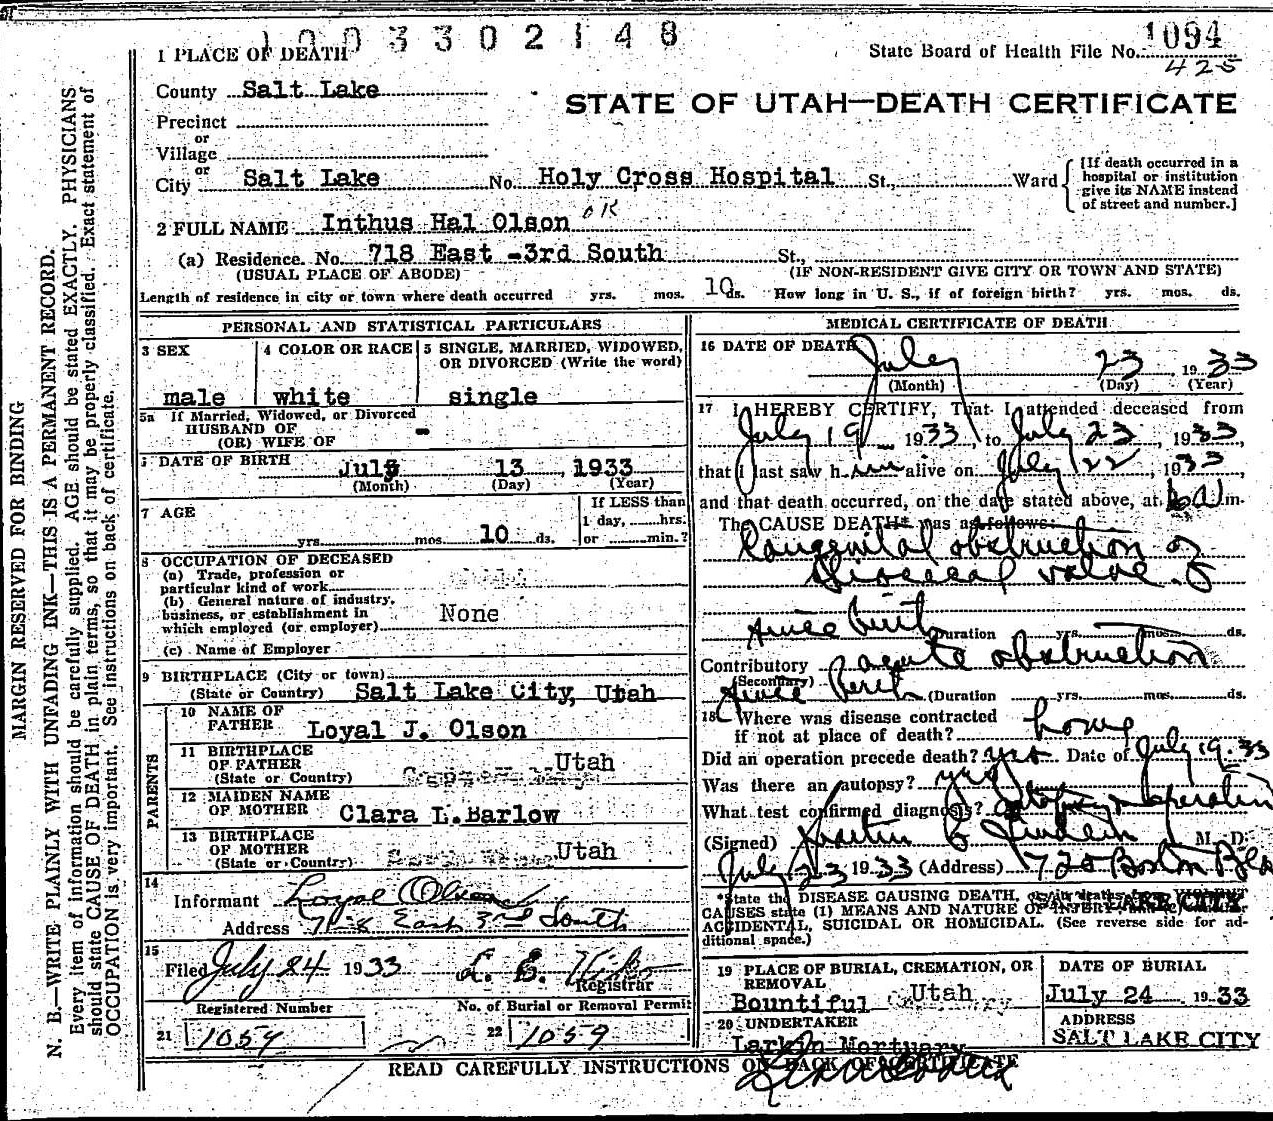 1003302148
1 PLACE OF DEATH
State Board of Health File No. 1094
425
County Salt Lake
STATE OF UTAH—DEATH CERTIFICATE
Precinct
or
Village
or
City Salt Lake No. Holy Cross Hospital St., Ward
[If death occurred in a
hospital or institution
give its NAME instead
of street and number.]
2 FULL NAME Inthus Hal Olson OK
(a) Residence. No. 718 East -3rd South St.,
(USUAL PLACE OF ABODE) (IF NON-RESIDENT GIVE CITY OR TOWN AND STATE)
Length of residence in city or town where death occurred yrs. mos. 10 ds. How long in U. S., if of foreign birth? yrs. mos. ds.
PERSONAL AND STATISTICAL PARTICULARS
3 SEX 4 COLOR OR RACE 5 SINGLE, MARRIED, WIDOWED,
OR DIVORCED (Write the word)
male white single
5a If Married, Widowed, or Divorced
HUSBAND OF
(OR) WIFE OF -
DATE OF BIRTH July 13, 1933
(Month) (Day) (Year)
7 AGE
If LESS than
1 day, hrs.
yrs. mos. 10 ds. or min.?
8 OCCUPATION OF DECEASED
(a) Trade, profession or
particular kind of work
(b) General nature of industry,
business, or establishment in
which employed (or employer) None
(c) Name of Employer
9 BIRTHPLACE (City or town)
(State or Country) Salt Lake City, Utah
PARENTS
10 NAME OF
FATHER Loyal J. Olson
11 BIRTHPLACE
OF FATHER Utah
(State or Country)
12 MAIDEN NAME
OF MOTHER Clara L. Barlow
13 BIRTHPLACE
OF MOTHER Utah
(State or Country)
14
Informant Loyal Olson
Address 718 East 3rd South
15
Filed July 24 1933
Registrar
Registered Number No. of Burial or Removal Permit
21 1059 22 1059
MEDICAL CERTIFICATE OF DEATH
16 DATE OF DEATH July 23 1933
(Month) (Day) (Year)
17 I HEREBY CERTIFY, That I attended deceased from
July 19 1933, to July 23, 1933,
that I last saw him alive on July 22, 1933
and that death occurred, on the date stated above, at m.
The CAUSE DEATH* was as follows:
Congenital obstruction of
valve
Since Birth Duration yrs. mos. ds.
Contributory acute obstruction
(Secondary)
Since Birth (Duration yrs. mos. ds.
18 Where was disease contracted
if not at place of death? home
Did an operation precede death? yes Date of July 19-33
Was there an autopsy? yes
What test confirmed diagnosis? autopsy & operation
(Signed) Martin C Lindem M. D.
July 23 1933 (Address) 720 Boston Bldg
*State the DISEASE CAUSING DEATH, or in deaths from VIOLENT
CAUSES state (1) MEANS AND NATURE OF INJURY; and (2) whether
ACCIDENTAL, SUICIDAL OR HOMICIDAL. (See reverse side for ad-
ditional space.)
SALT LAKE CITY
19 PLACE OF BURIAL, CREMATION, OR
REMOVAL
Bountiful Utah
DATE OF BURIAL
July 24 1933
20 UNDERTAKER
Larkin Mortuary
ADDRESS
SALT LAKE CITY
READ CAREFULLY INSTRUCTIONS ON BACK OF CERTIFICATE
MARGIN RESERVED FOR BINDING
N. B.—WRITE PLAINLY WITH UNFADING INK—THIS IS A PERMANENT RECORD.
Every item of information should be carefully supplied. AGE should be stated EXACTLY. PHYSICIANS
should state CAUSE OF DEATH in plain terms, so that it may be properly classified. Exact statement of
OCCUPATION is very important. See instructions on back of certificate.